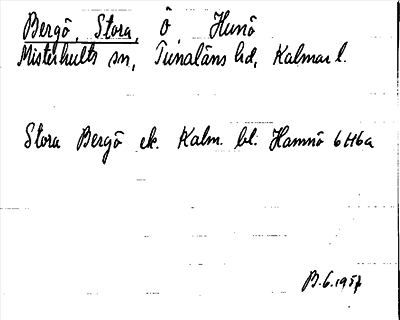 Bergö, Stora, Ö, Hunö
Misterhults sn, Tunaläns hd, Kalmar l.
Stora Bergö ek. Kalm. bl. Hamnö 6H6a
B.G.1957